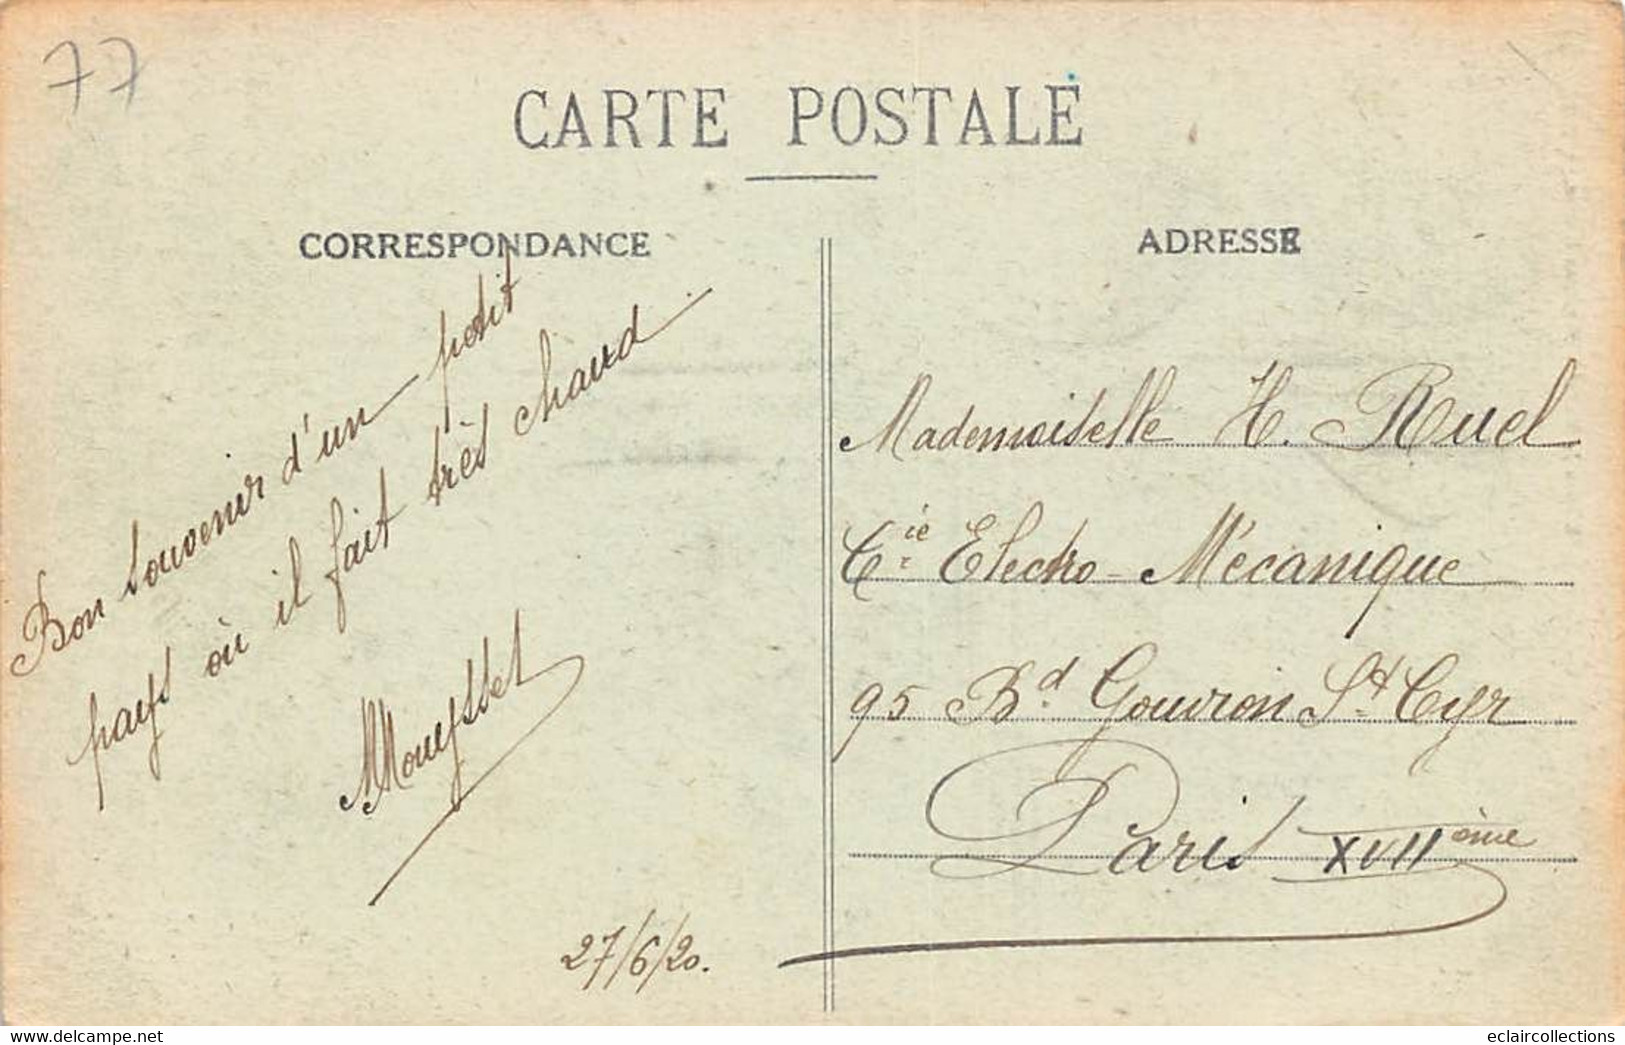 77
CARTE POSTALE
CORRESPONDANCE
Bon souvenir d'un petit
pays où il fait très chaud
MMouysset
27/6/20.
ADRESSE
Mademoiselle H. Ruel
Cie Electro-Mécanique
95 Bd Gouvron St Cyr
Paris XVIIème
www.delcampe.net
eclaircollections